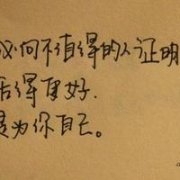 必向不值得的人证明
活得更好.
是为你自己。